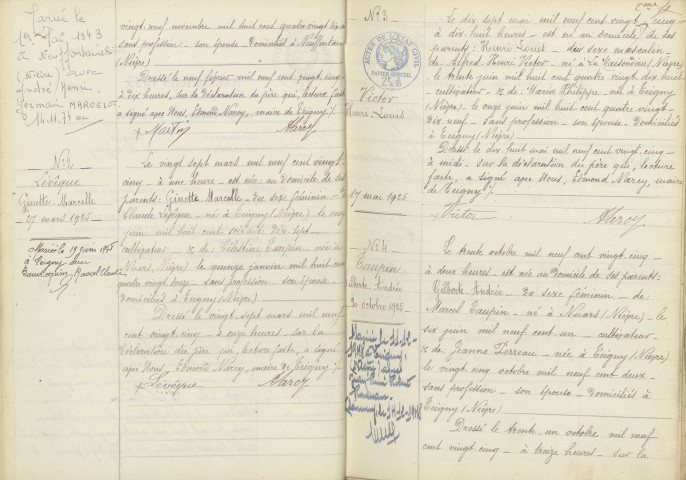 1er
1943
à Neuffontaines
(Nièvre) avec
André Henri,
Germain MARCELOT
vingt-neuf novembre mil huit cent quatre vingt dix
sans profession - son épouse - domiciliés à Neuffontaines
(Nièvre)
Dressé le neuf février mil neuf cent vingt cinq
à dix heures, sur la déclaration du père qui, lecture faite
a signé avec Nous, Edmond Marcy, maire de Teigny /.
Martin Marcy
N° 2
Lévêque
Ginette Marcelle
27 mars 1925
Mariée le 19 juin 1945
à Teigny avec
Marcel Claude
Le vingt sept mars mil neuf cent vingt-
cinq - à une heure - est née au domicile de ses
parents: Ginette Marcelle - du sexe féminin - de
Claude Lévêque - né à Teigny (Nièvre) le neuf
juin mil huit cent soixante dix sept -
cultivateur - & de Célestine Taupin - née à
Nuars (Nièvre) le quinze janvier mil huit cent
quatre vingt onze - sans profession - son épouse -
domiciliés à Teigny (Nièvre)
Dressé le vingt sept mars mil neuf
cent vingt-cinq - à onze heures - sur la
déclaration du père qui, lecture faite, a signé
avec Nous, Edmond Marcy, maire de Teigny /.
Lévêque Marcy
N° 3
ACTES DE L'ETAT CIVIL
PAPIER SPECIAL
Victor
Henri Louis
17 mai 1925
Le dix sept mai mil neuf cent vingt-cinq -
à dix huit heures - est né au domicile de ses
parents: Henri Louis - du sexe masculin -
de Alfred Henri Victor - né à
(Nièvre)
le trente juin mil huit cent quatre vingt dix huit -
cultivateur - & de Maria Philippe - née à Teigny
(Nièvre) le onze juin mil huit cent quatre-vingt-
dix neuf - sans profession - son épouse - domiciliés
à Teigny (Nièvre)
Dressé le dix huit mai mil neuf cent vingt-cinq -
à midi - sur la déclaration du père qui, lecture
faite, a signé avec Nous, Edmond Marcy, maire
de Teigny /.
Victor Marcy
N° 4
Taupin
Gilberte Andrée
30 octobre 1925
Le trente octobre mil neuf cent vingt-cinq -
à deux heures - est née au domicile de ses parents:
Gilberte Andrée - du sexe féminin - de:
Marcel Taupin - né à Nuars (Nièvre) - le
six juin mil neuf cent un - cultivateur -
& de Jeanne Perreau - née à Teigny (Nièvre)
le vingt cinq octobre mil neuf cent deux -
sans profession - son épouse - domiciliés à
Teigny (Nièvre)
Dressé le trente un octobre mil neuf
cent vingt-cinq - à treize heures - sur la